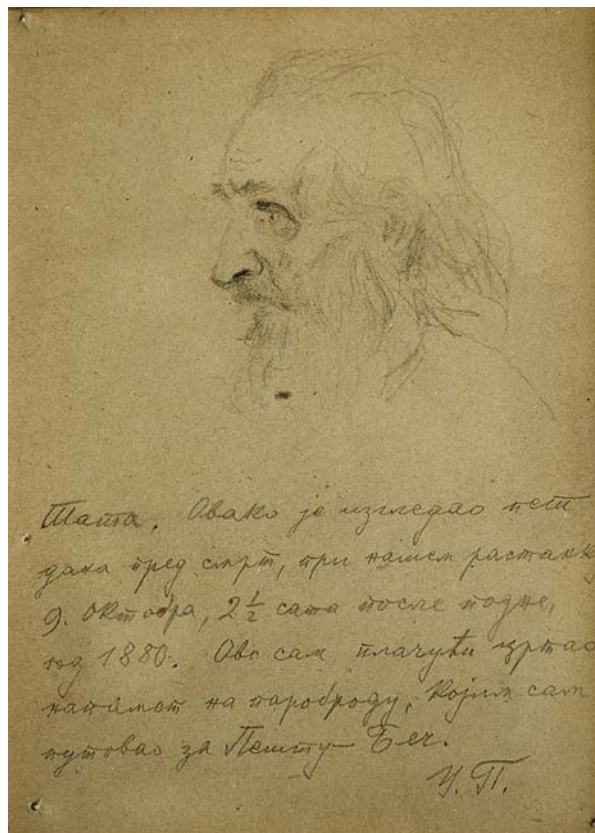 Тата. Овако је изгледао пет
дана пред смрт, при нашем растанку
9. Октобра, 2½ сата после подне,
год 1880. Ово сам плачући цртао
напамет на пароброду, којим сам
путовао за Пешту – Беч.
У. П.